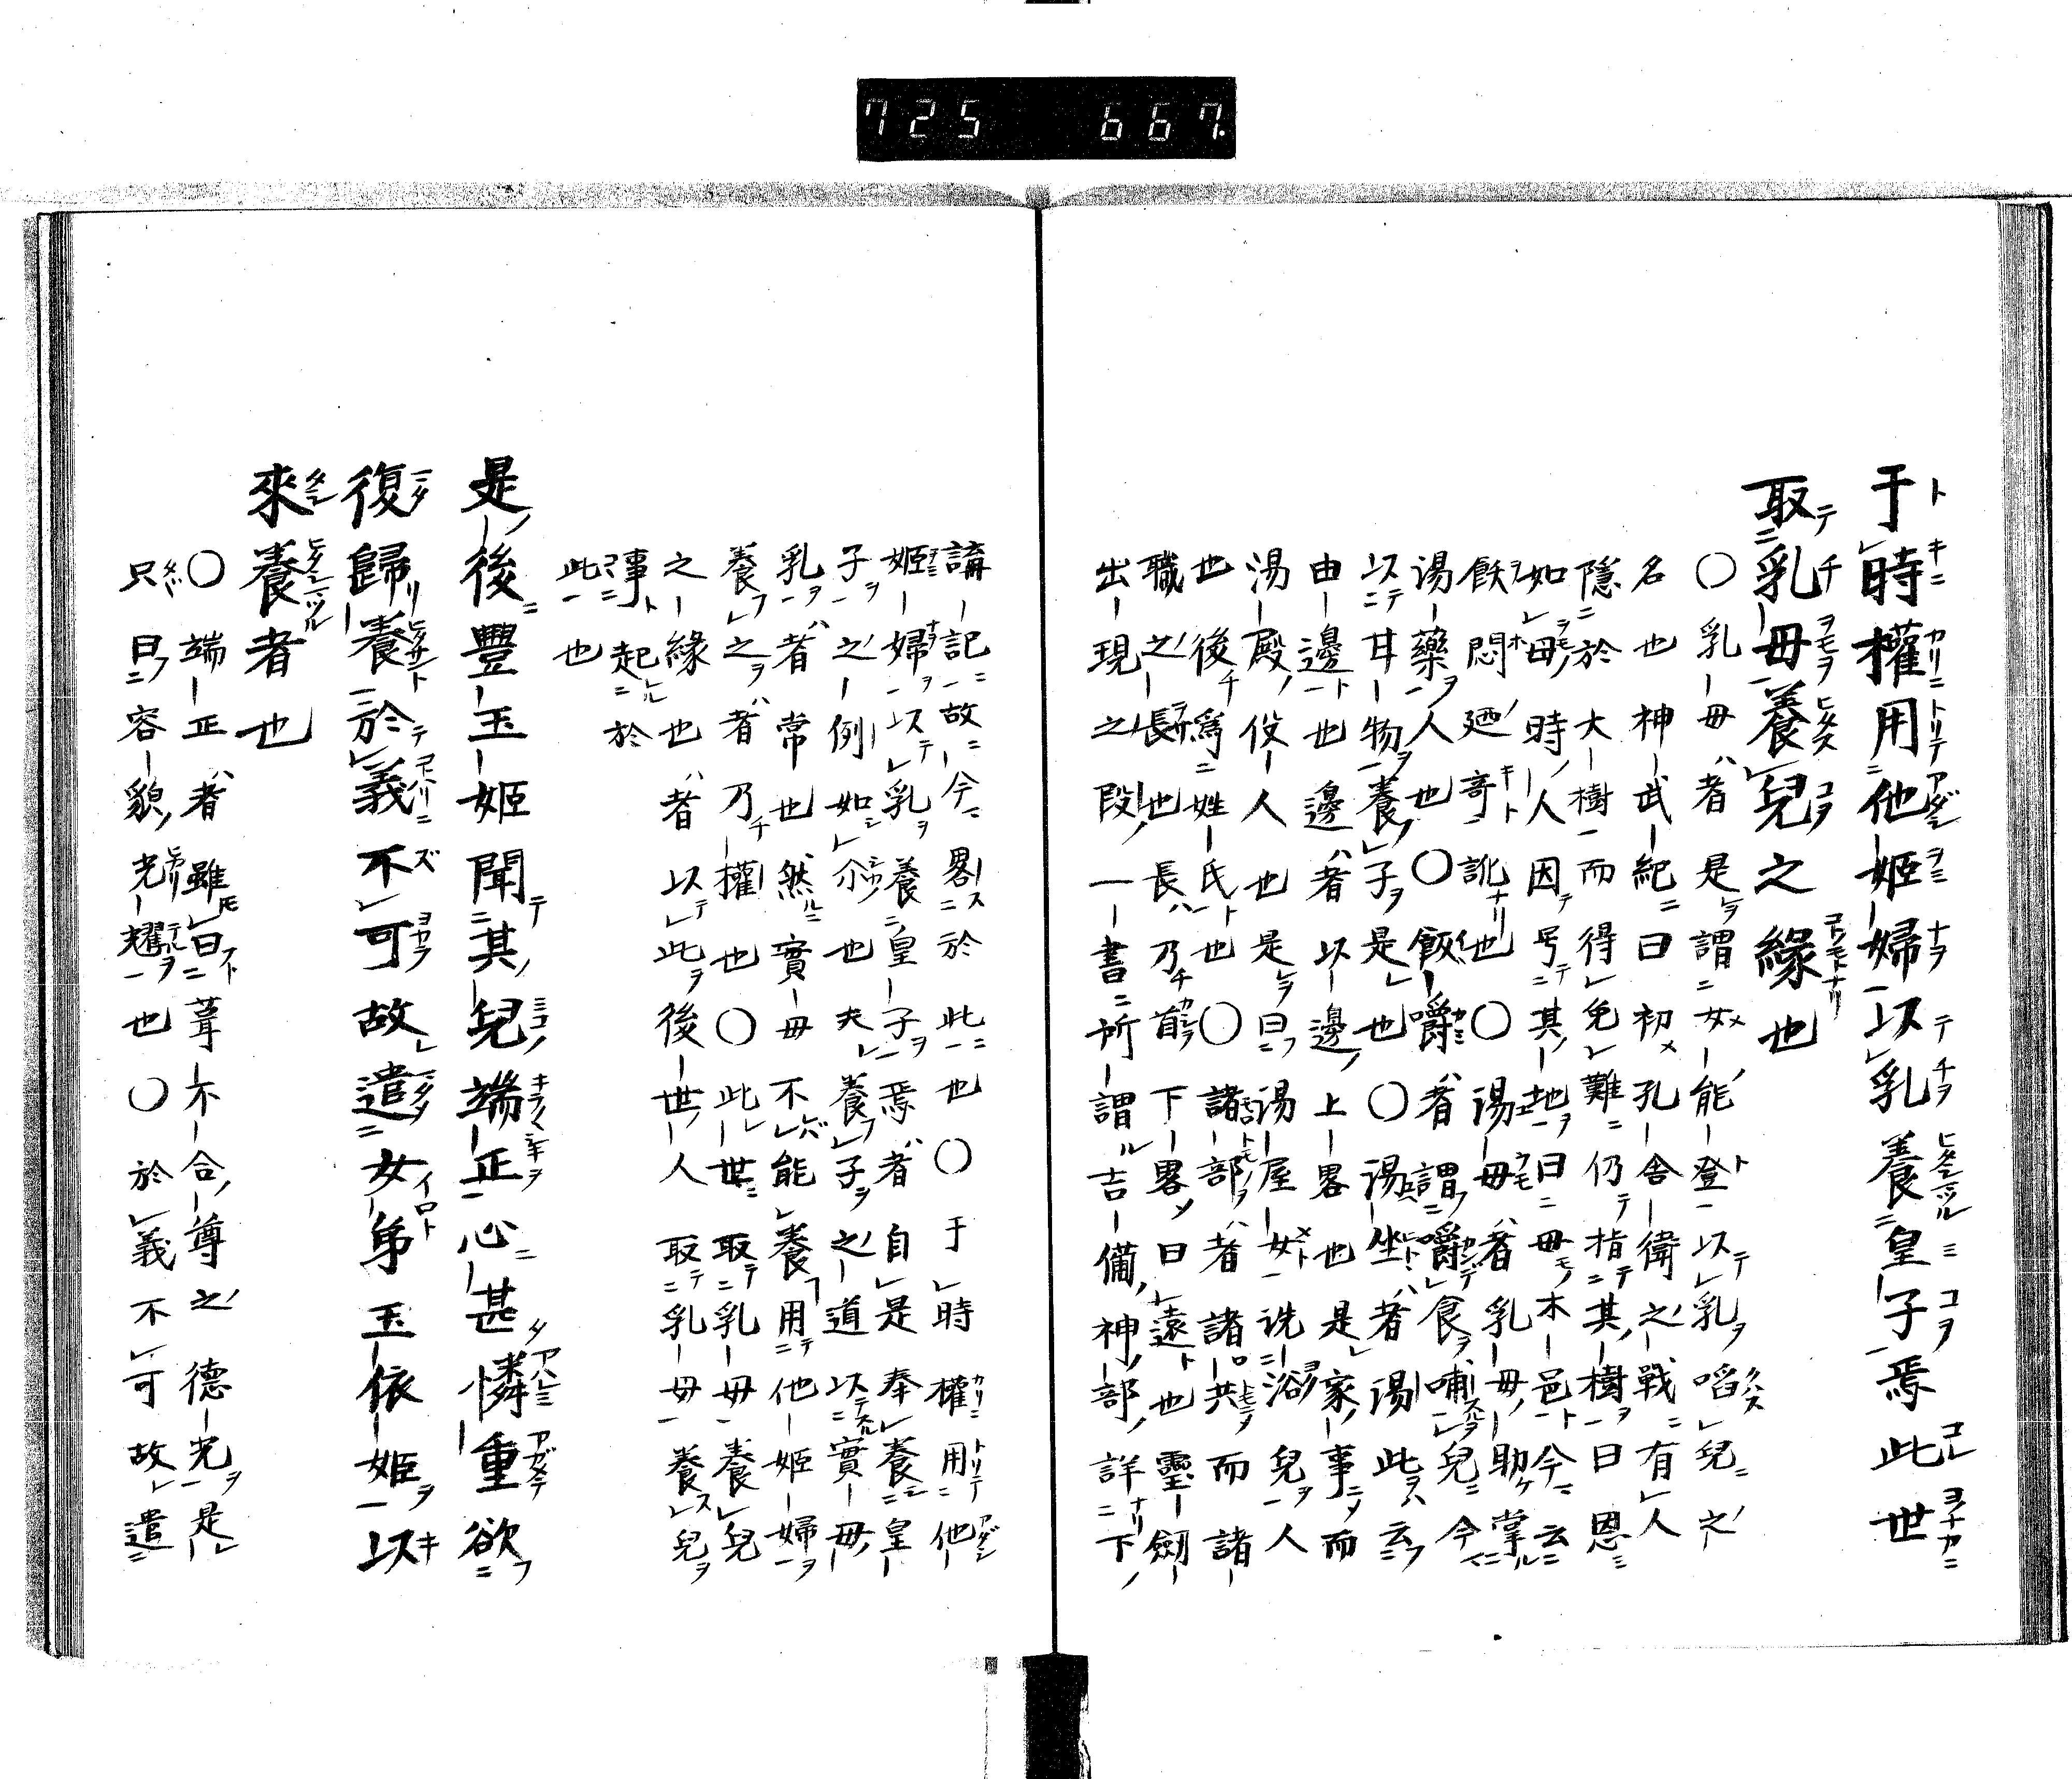 725 667.
于時權用他姬婦以乳養皇子焉此世
取乳母養兒之緣也
○乳母者是謂女能登以乳㗖兒之
名也神武紀曰初孔舎衛之戰有人
隱於大樹而得免難仍指其樹曰恩
如母時人因号其地曰母木邑今云
飫悶廼奇訛也○湯母者乳母助掌
湯藥人也○飯嚼者謂嚼食哺兒今
以甘物養子是也○湯坐者湯此云
由邊也邊者以邊上畧也是家事而
湯殿伇人也是曰湯屋女洗浴兒人
也後爲姓氏也○諸部者諸共而諸
職之長也長乃首下畧曰遠也靈劔
出現之段一書所謂吉備神部詳下
講記故今畧於此也○于時權用他
姬婦以乳養皇子焉者自是奉養皇
子之例如尒也夫養子之道以實母
乳者常也然實母不能養用他姬婦
養之者乃權也○此世取乳母養兒
之緣也者以此後世人取乳母養兒
事起於
此也
是後豐玉姬聞其兒端正心甚憐重欲
復歸養於義不可故遣女弟玉依姬以
來養者也
○端正者雖曰葺不合尊之德光是
只曰容貌光耀也○於義不可故遣